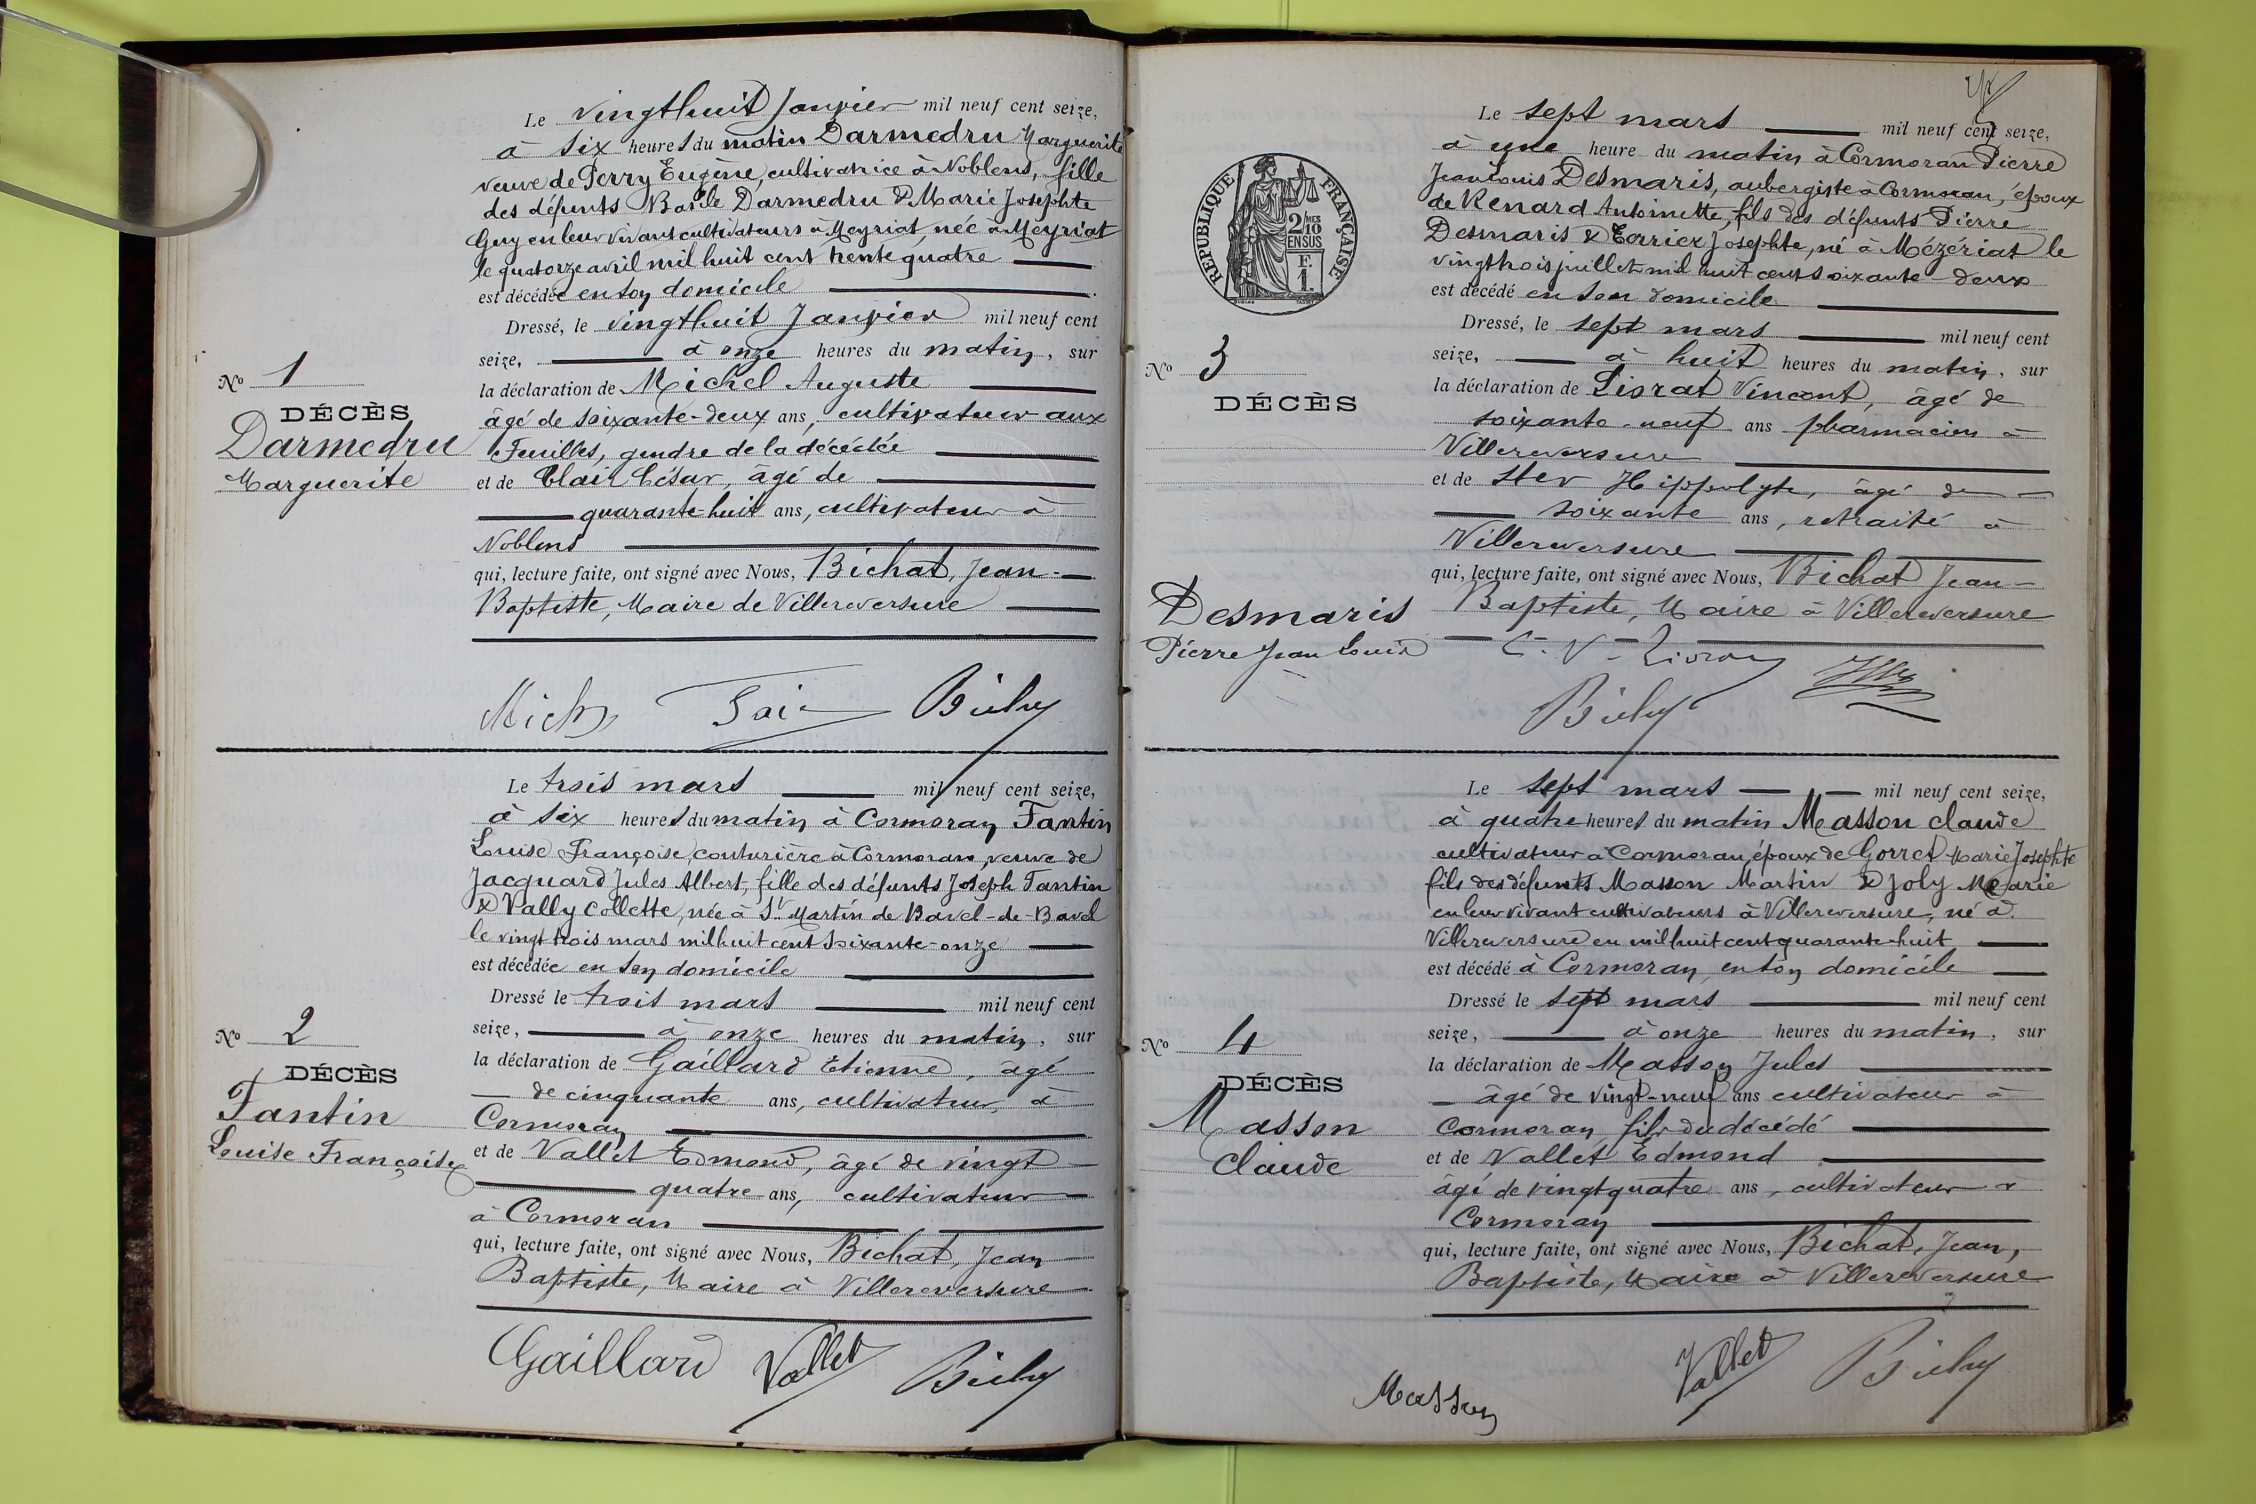 Le vingt huit Janvier mil neuf cent seize,
à six heures du matin Darmedru Marguerite
veuve de Perry Eugène, cultivatrice à Noblens, fille
des défunts Darmedru & Marie Josephte
Guy en leur vivant cultivateurs à Meyriat, née à Meyriat
le quatorze avril mil huit cent trente quatre
est décédée en son domicile
Dressé, le vingt huit Janvier mil neuf cent
seize, à onze heures du matin, sur
la déclaration de Michel Auguste
âgé de soixante-deux ans, cultivateur aux
Feuilles, gendre de la décédée
et de Clair César, âgé de
quarante-huit ans, cultivateur à
Noblens
qui, lecture faite, ont signé avec Nous, Bichat, Jean-
Baptiste, Maire de Villereversure
No 1
DÉCÈS
Darmedru
Marguerite
Le trois mars mil neuf cent seize,
à six heures du matin à Cormoran Fantin
Louise Françoise, couturière à Cormoran, veuve de
Jacquard Jules Albert, fille des défunts Joseph Fantin
& Vally Collette, née à St Martin de Bavel-de-Bavel
le vingt trois mars mil huit cent soixante-onze
est décédée en son domicile
Dressé le trois mars mil neuf cent
seize, à onze heures du matin, sur
la déclaration de Gaillard Etienne, agé
de cinquante ans, cultivateur, à
Cormoran
et de Vallet Edmond, âgé de vingt
quatre ans, cultivateur
à Cormoran
qui, lecture faite, ont signé avec Nous, Bichat, Jean
Baptiste, Maire à Villereversure
No 2
DÉCÈS
Fantin
Louise Françoise
Gaillard Vallet
RÉPUBLIQUE FRANÇAISE
2/10
EN SUS
F.
1.
Le sept mars mil neuf cent seize,
à une heure du matin à Cormoran Pierre
Jean Louis Desmaris, aubergiste à Cormoran, époux
de Renard Antoinette, fils des défunts Pierre
Desmaris & Josephte, né à Mézériat le
vingt trois juillet mil huit cent soixante deux
est décédé en son domicile
Dressé, le sept mars mil neuf cent
seize, à huit heures du matin, sur
la déclaration de Vincent, âgé de
soixante-neuf ans pharmacien à
Villereversure
et de Hippolyte, âgé de
soixante ans, retraité à
Villereversure
qui, lecture faite, ont signé avec Nous, Bichat Jean-
Baptiste, Maire à Villereversure
No 3
DÉCÈS
Desmaris
Pierre Jean Louis
Le sept mars mil neuf cent seize,
à quatre heures du matin Masson Claude
cultivateur à Cormoran, époux de Gorret Marie Josephte
fils des défunts Masson Martin & Joly Marie
en leur vivant cultivateurs à Villereversure, né à
Villereversure en mil huit cent quarante huit
est décédé à Cormoran, en son domicile
Dressé le sept mars mil neuf cent
seize, à onze heures du matin, sur
la déclaration de Masson Jules
âgé de vingt-neuf ans cultivateur à
Cormoran fils du décédé
et de Vallet Edmond
âgé de vingt quatre ans, cultivateur à
Cormoran
qui, lecture faite, ont signé avec Nous, Bichat, Jean,
Baptiste, Maire à Villereversure
No 4
DÉCÈS
Masson
Claude
Masson Vallet